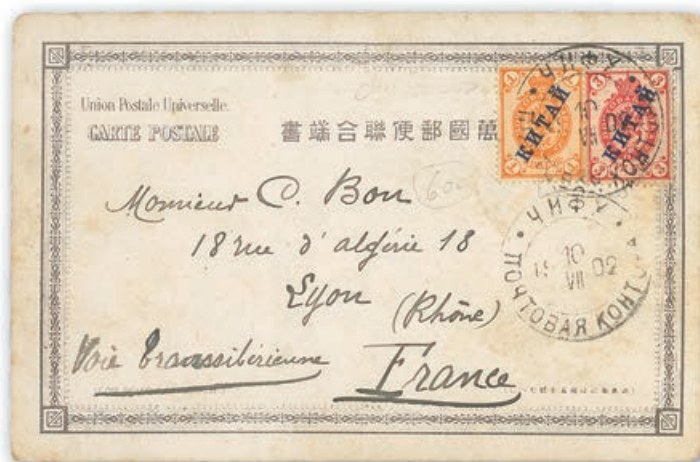 Union Postale Universelle.
CARTE POSTALE
萬國郵便聯合端書
1 1
1 1
КИТАЙ
3 3
КИТАЙ
ЧИФУ
10
VII 02
ЧИФУ
10
19 02
VII
ПОЧТОВАЯ КОНТОРА
600
Monsieur C. Bon
18 rue d'algérie 18
Lyon (Rhône)
Voie transsibérienne
France